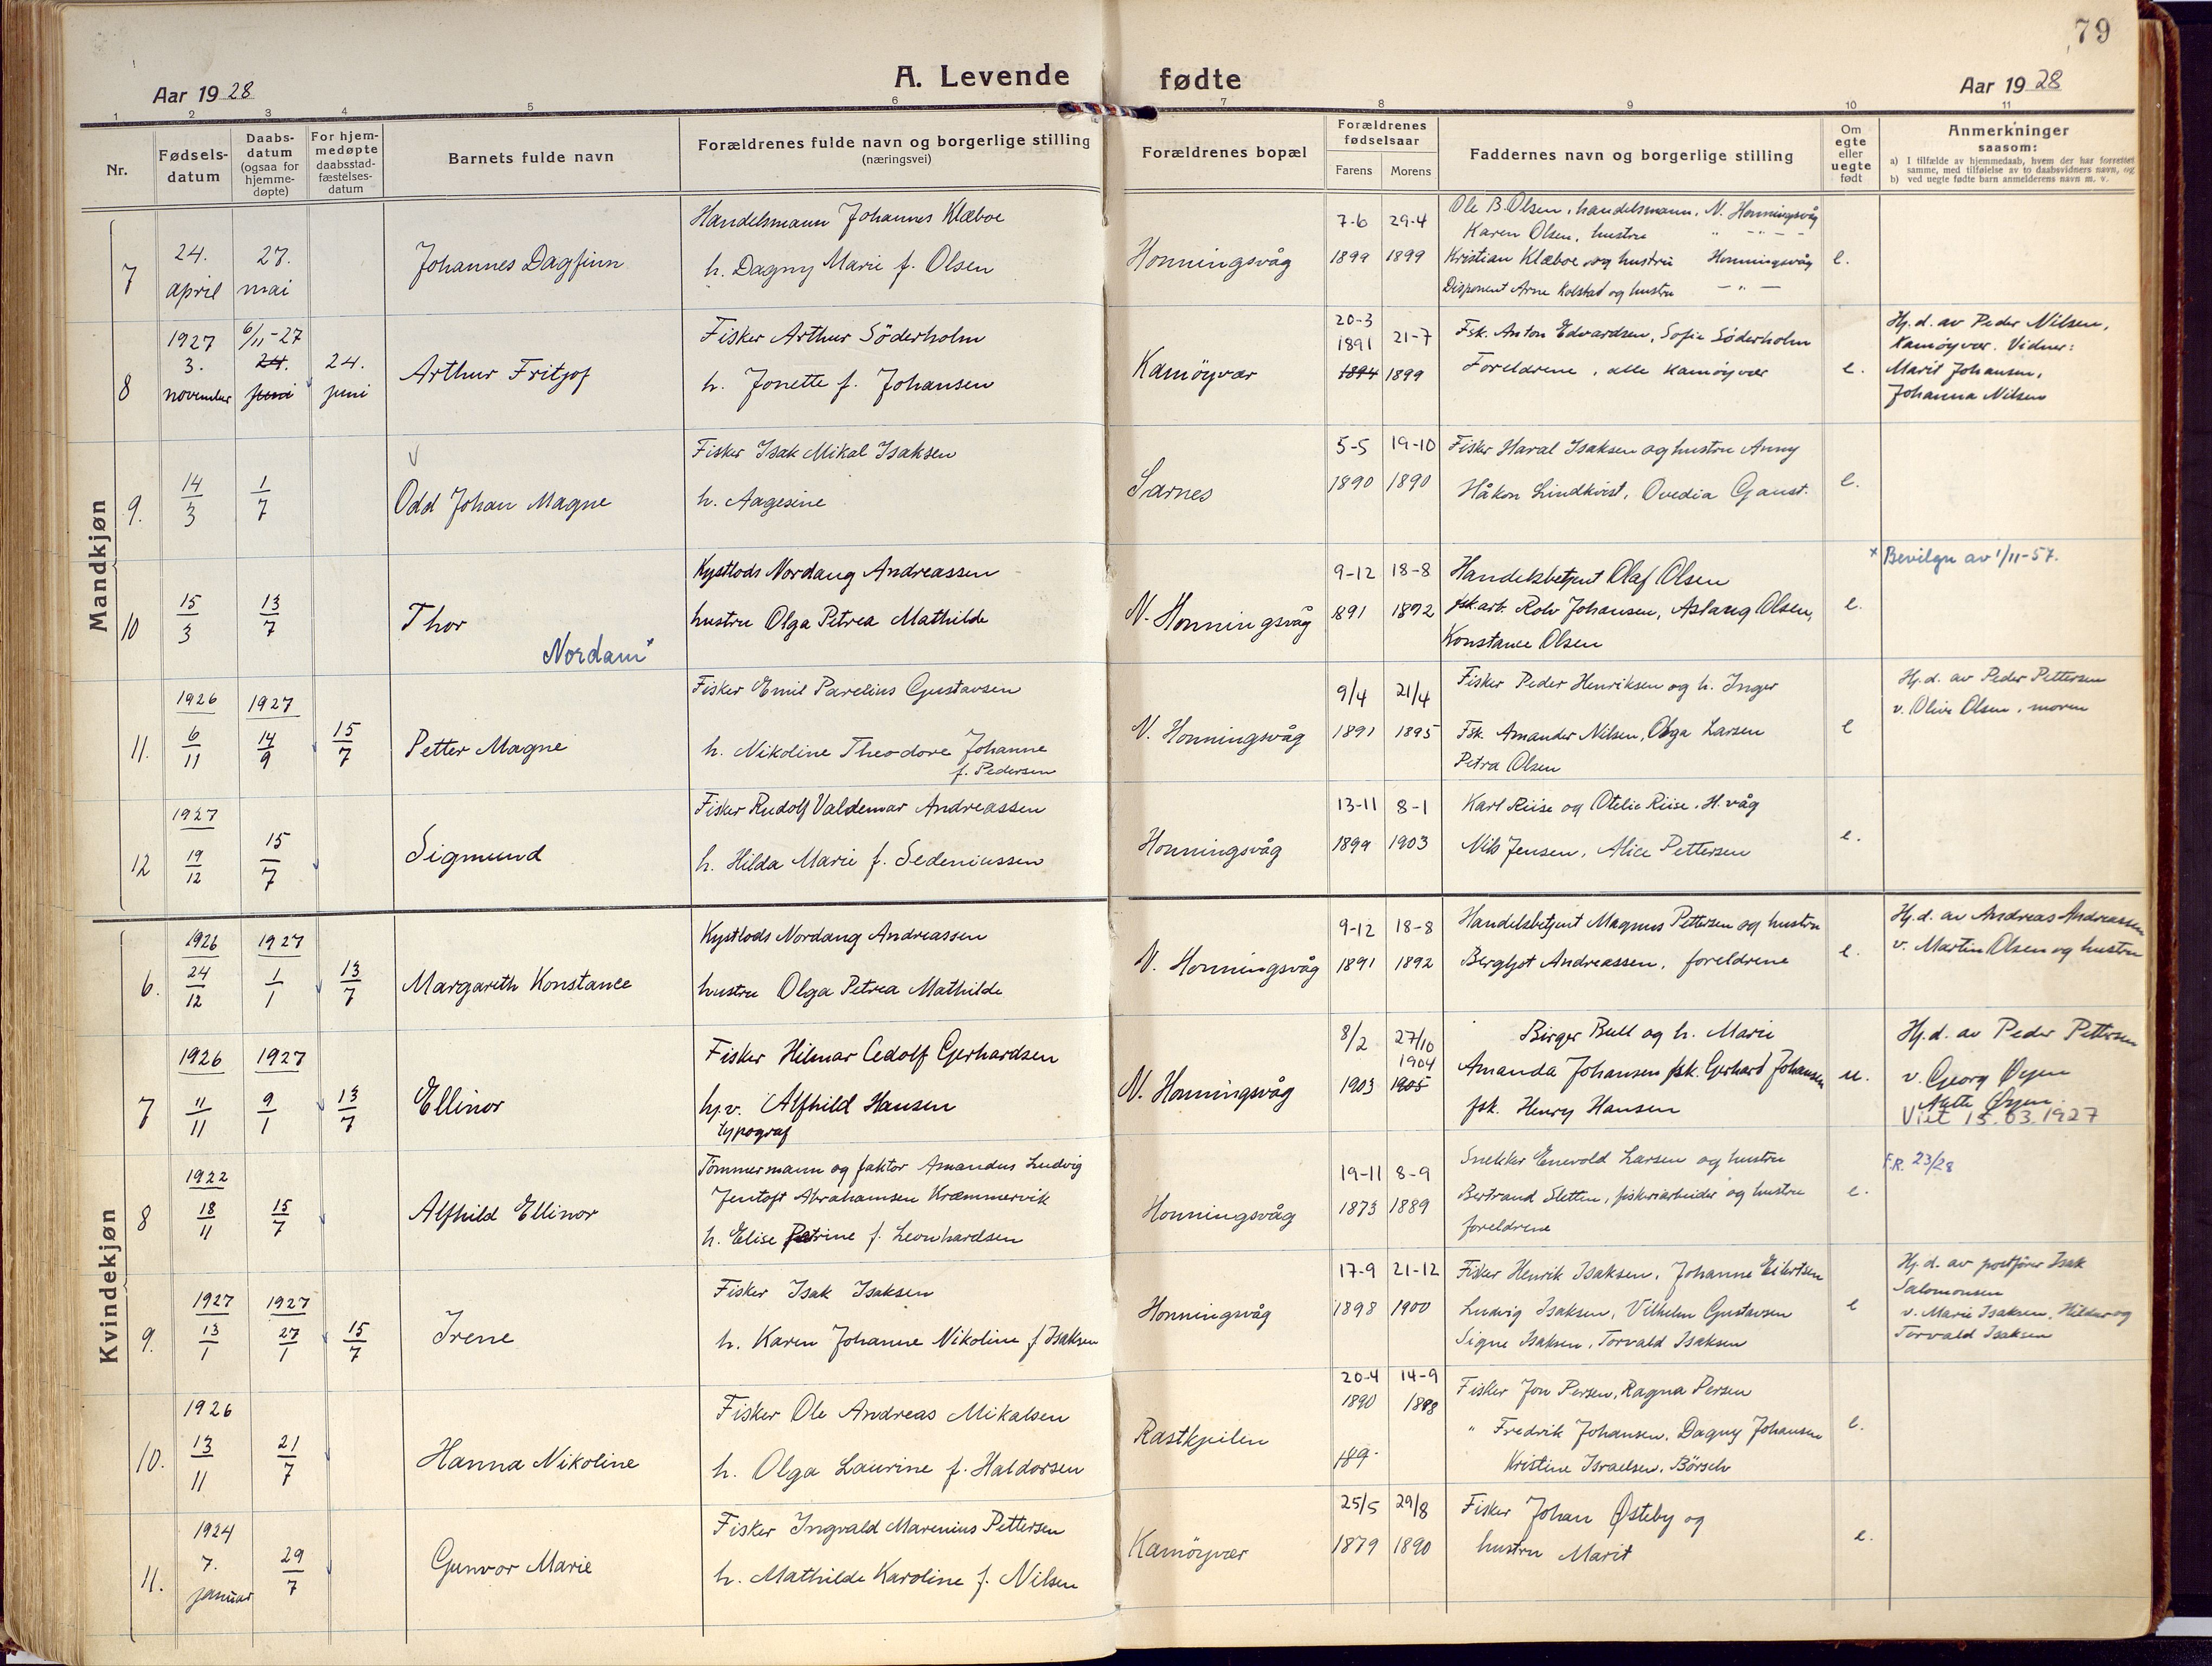 79
Aar 1928
A. Levende fødte
Aar 1928
1 2 3 4 5 6 7 8 9 10 11
Nr.
Fødsels-
datum
Daabs-
datum
(ogsaa for
hjemme-
døpte)
For hjem-
medøpte
daabsstad-
fæstelses-
datum
Barnets fulde navn
Forældrenes fulde navn og borgerlige stilling
(næringsvei)
Forældrenes bopæl
Forældrenes
fødselsaar
Farens Morens
Faddernes navn og borgerlige stilling
Om
egte
eller
uegte
født
Anmerkninger
saasom:
a) I tilfælde av hjemmedaab, hvem der har forrettet
samme, med tilføielse av to daabsvidners navn, og
b) ved uegte fødte barn anmelderens navn m. v.
Mandkjøn
7
24.
april
27.
mai
Johannes Dagfinn
Handelsmann Johannes Klæboe
h. Dagny Marie f. Olsen
Honningsvåg
7-6 29-4
1899 1899
Ole B. Olsen, handelsmann, N. Honningsvåg
Karen Olsen, hustru " - " - -
Kristian Klæboe og hustru Honningsvåg
Disponent Arne Kolstad og hustru - " -
e.
8
1927
3.
november
6/11-27
24.
juni
24.
juni
Arthur Fritjof
Fisker Arthur Söderholm
h. Jonette f. Johansen
Kamöyvær
20-3
1891 21-7
1894 1899
Fsk. Anton Edvardsen, Sofie Söderholm
Foreldrene, alle Kamöyvær
e.
Hj.d. av Peder Nilsen,
Kamöyvær. Vidner:
Marit Johansen,
Johanna Nilsen
9.
14/3
1/7
Odd Johan Magne
Fisker Isak Mikal Isaksen
h. Aagesine
Sarnes
5-5 19-10
1890 1890
Fisker Haral Isaksen og hustru Anny
Håkon Lindkvist, Ovedia Gaust.
e.
10
15/3
13/7
Thor
Nordam x
Kystlods Nordang Andreassen
hustru Olga Petrea Mathilde
N. Honningsvåg
9-12 18-8
1891 1892
Handelsbetjent Olaf Olsen
fsk.arb. Rolv Johansen, Aslaug Olsen,
Konstance Olsen
e.
x Bevilgn av 1/11-57.
11.
1926
6/11
1927
14/9
15/7
Petter Magne
Fisker Emil Parelius Gustavsen
h. Nikoline Theodore Johanne
f. Pedersen
N. Honningsvåg
9/4 21/4
1891 1895
Fisker Peder Henriksen og h. Inger
Fsk. Amander Nilsen, Olga Larsen
Petra Olsen
e
Hj.d. av Peder Pettersen
v. Olive Olsen, moren
12
1927
19/12
15/7
Sigmund
Fisker Rudolf Valdemar Andreassen
h. Hilda Marie f. Sedeniussen
Honningsvåg
13-11 8-1
1899 1903
Karl Riise og Otelie Riise, H.våg
Nils Jensen, Alice Pettersen
e.
Kvindekjøn
6.
1926
24/12
1927
1/1
13/7
Margareth Konstance
Kystlods Nordang Andreassen
hustru Olga Petrea Mathilde
N. Honningsvåg
9-12 18-8
1891 1892
Handelsbetjent Magnus Pettersen og hustru
Bergljot Andreassen, foreldrene
e.
Hj.d. av Andreas Andreassen
v. Martin Olsen og hustru
7
1926
11/11
1927
9/1
13/7
Ellinor
Fisker Hilmar Cedolf Gerhardsen
hj.v. Alfhild Hansen
N. Honningsvåg
8/2 27/10
1904
1903 1905
Birger Bull og h. Marie
Amanda Johansen fsk. Gerhard Johansen
fsk. Henry Hansen
u.
Hj.d. av Peder Pettersen
v. Georg Øyen
Øyen.
Viet 15.03.1927
8
1922
18/11
15/7
Alfhild Ellinor
typograf
Tömmermann og faktor Amandus Ludvig
Jentoft Abrahamsen Kræmmervik
h. Elise Petrine f. Leonhardsen
Honningsvåg
19-11 8-9
1873 1889
Snekker Enevold Larsen og hustru
Bertrand Sletten, fiskeriarbeider og hustru
foreldrene
e.
F.R. 23/28
9.
1927
13/1
1927
27/1
15/7
Irene
Fisker Isak Isaksen
h. Karen Johanne Nikoline f Isaksen
Honningsvåg
17-9 21-12
1898 1900
Fisker Henrik Isaksen, Johanne Eilertsen
Ludvig Isaksen, Vilhelm Gustavsen
Signe Isaksen, Torvald Isaksen
e
Hj.d. av postfører Isak
Salomonsen
v. Marie Isaksen, Hildur og
Torvald Isaksen
10.
1926
13/11
21/7
Hanna Nikoline
Fisker Ole Andreas Mikalsen
h. Olga Laurine f. Haldorsen
Rastkjeilen
20-4 14-9
1890 1898
189
Fisker Jon Persen, Ragna Persen
" Fredrik Johansen, Dagny Johansen
Kristine Israelsen, Börselv
e.
11.
1924
7.
januar
29/7
Gunvor Marie
Fisker Ingvald Marenius Pettersen
h. Mathilde Karoline f. Nilsen
Kamöyvær
25/5 29/8
1879 1890
Fisker Johan Østeby og
hustru Marit
e.